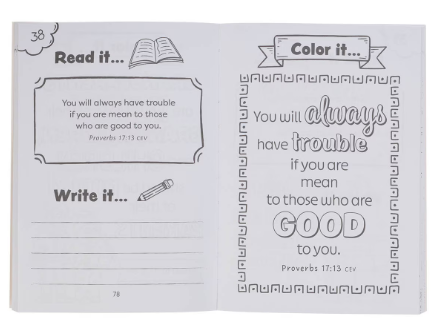 38
Read it...
You will always have trouble
if you are mean to those
who are good to you.
Proverbs 17:13 CEV
Write it...
78
Color it...
You will always
have trouble
if you are
mean
to those who are
GOOD
to you.
Proverbs 17:13 CEV